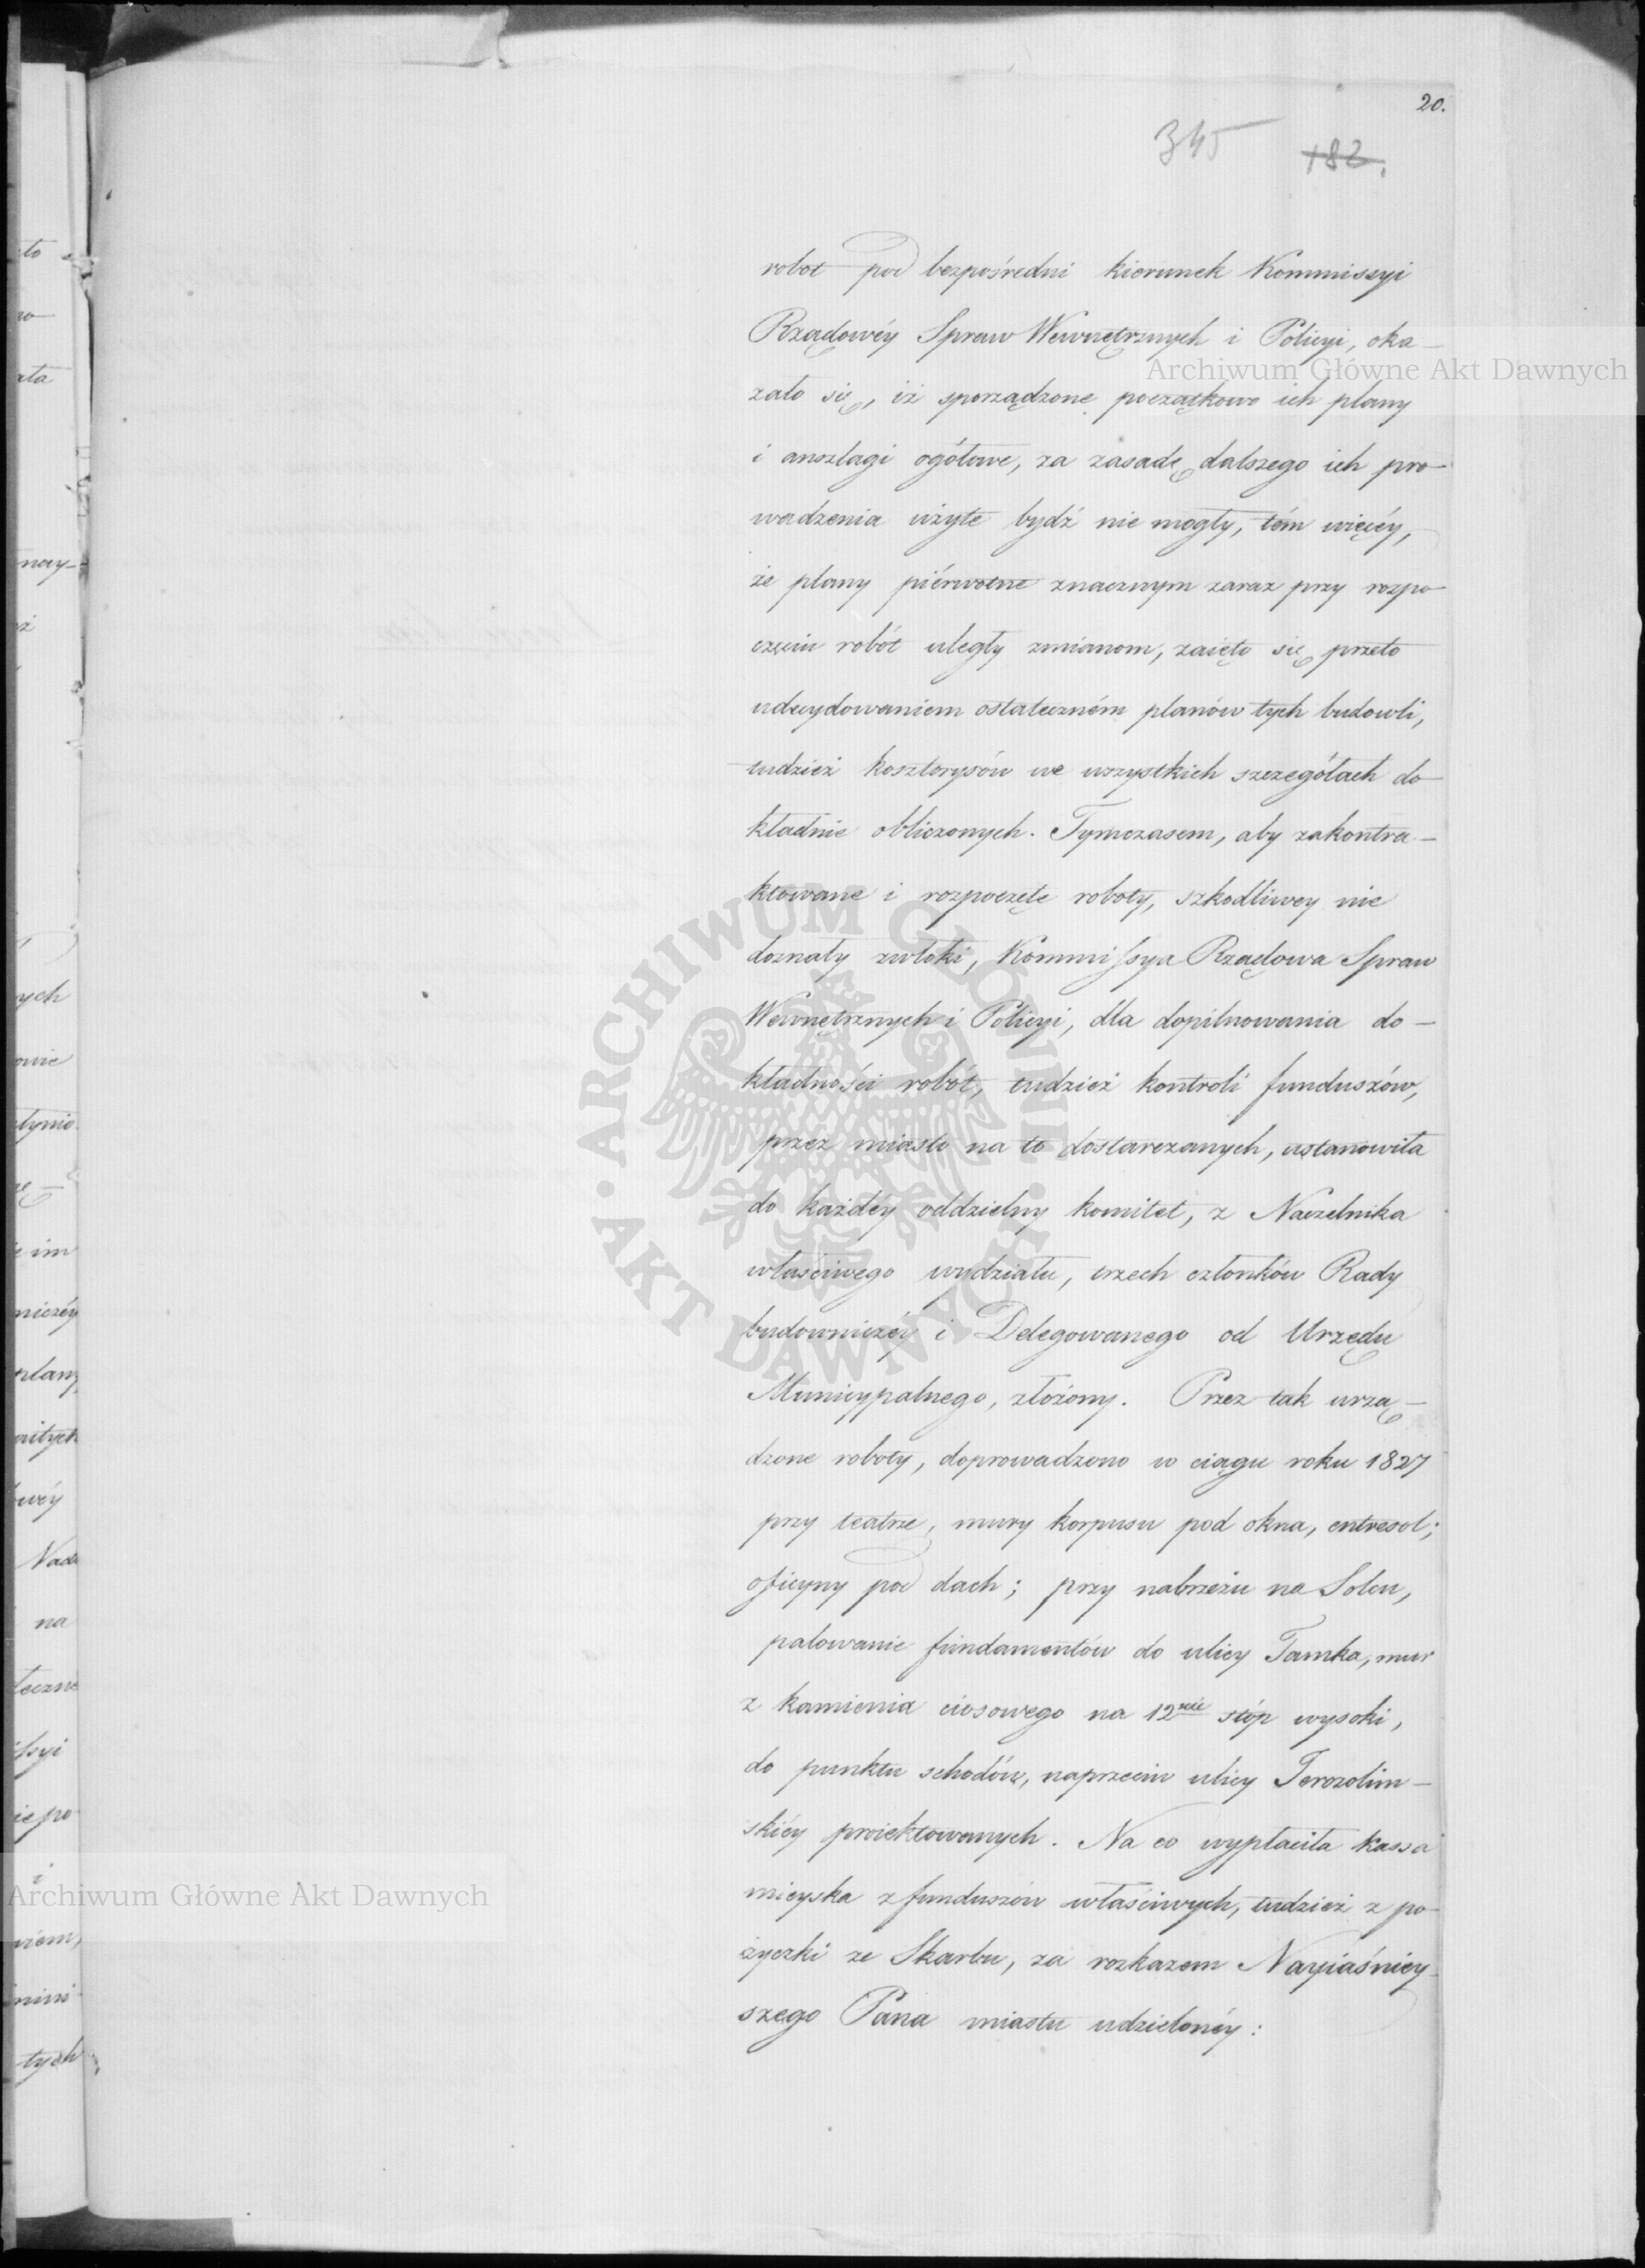 20.
345 182.
robot pod bezpośredni kierunek Kommissyi
Rządowéy Spraw Wewnętrznych i Policyi, oka-
Archiwum Główne Akt Dawnych
zało się, iż sporządzone początkowo ich plany
i anszlagi ogółowe, za zasadę dalszego ich pro-
wadzenia użyte bydź nie mogły, tém więcéy,
że plany piérwotne znacznym zaraz przy rozpo-
częciu robót uległy zmianom, zaięto się przeto
udecydowaniem ostateczném planów tych budowli,
tudzież kosztorysów we wszystkich szczegółach do-
kładnie obliczonych. Tymczasem, aby zakontra-
ktowane i rozpoczęte roboty, szkodliwey nie
doznały zwłoki, Kommissya Rządowa Spraw
Wewnętrznych i Policyi, dla dopilnowania do-
kładności robót, tudzież kontroli funduszów,
przez miasto na to dostarczanych, ustanowiła
do każdéy oddzielny komitet, z Naczelnika
właściwego wydziału, trzech członków Rady
budowniczéy i Delegowanego od Urzędu
Municypalnego, złożony. Przez tak urzą-
dzone roboty, doprowadzono w ciągu roku 1827
przy teatrze, mury korpusu pod okna, entresol;
oficyny pod dach; przy nabrzeżu na Solcu,
palowanie fundamentów do ulicy Tamka, mur
z kamienia ciosowego na 12ście stóp wysoki,
do punktu schodów, naprzeciw ulicy Jerozolim-
skiéy proiektowanych. Na co wypłaciła kassa
mieyska z funduszów właściwych, tudzież z po-
Archiwum Główne Akt Dawnych
życzki ze Skarbu, za rozkazem Nayiaśniey-
szego Pana miastu udzielonéy:
ARCHIWUM GŁÓWNE · AKT DAWNYCH ·